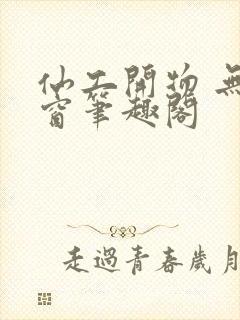 仙工開物 無
窗筆趣閣
走過青春歲月